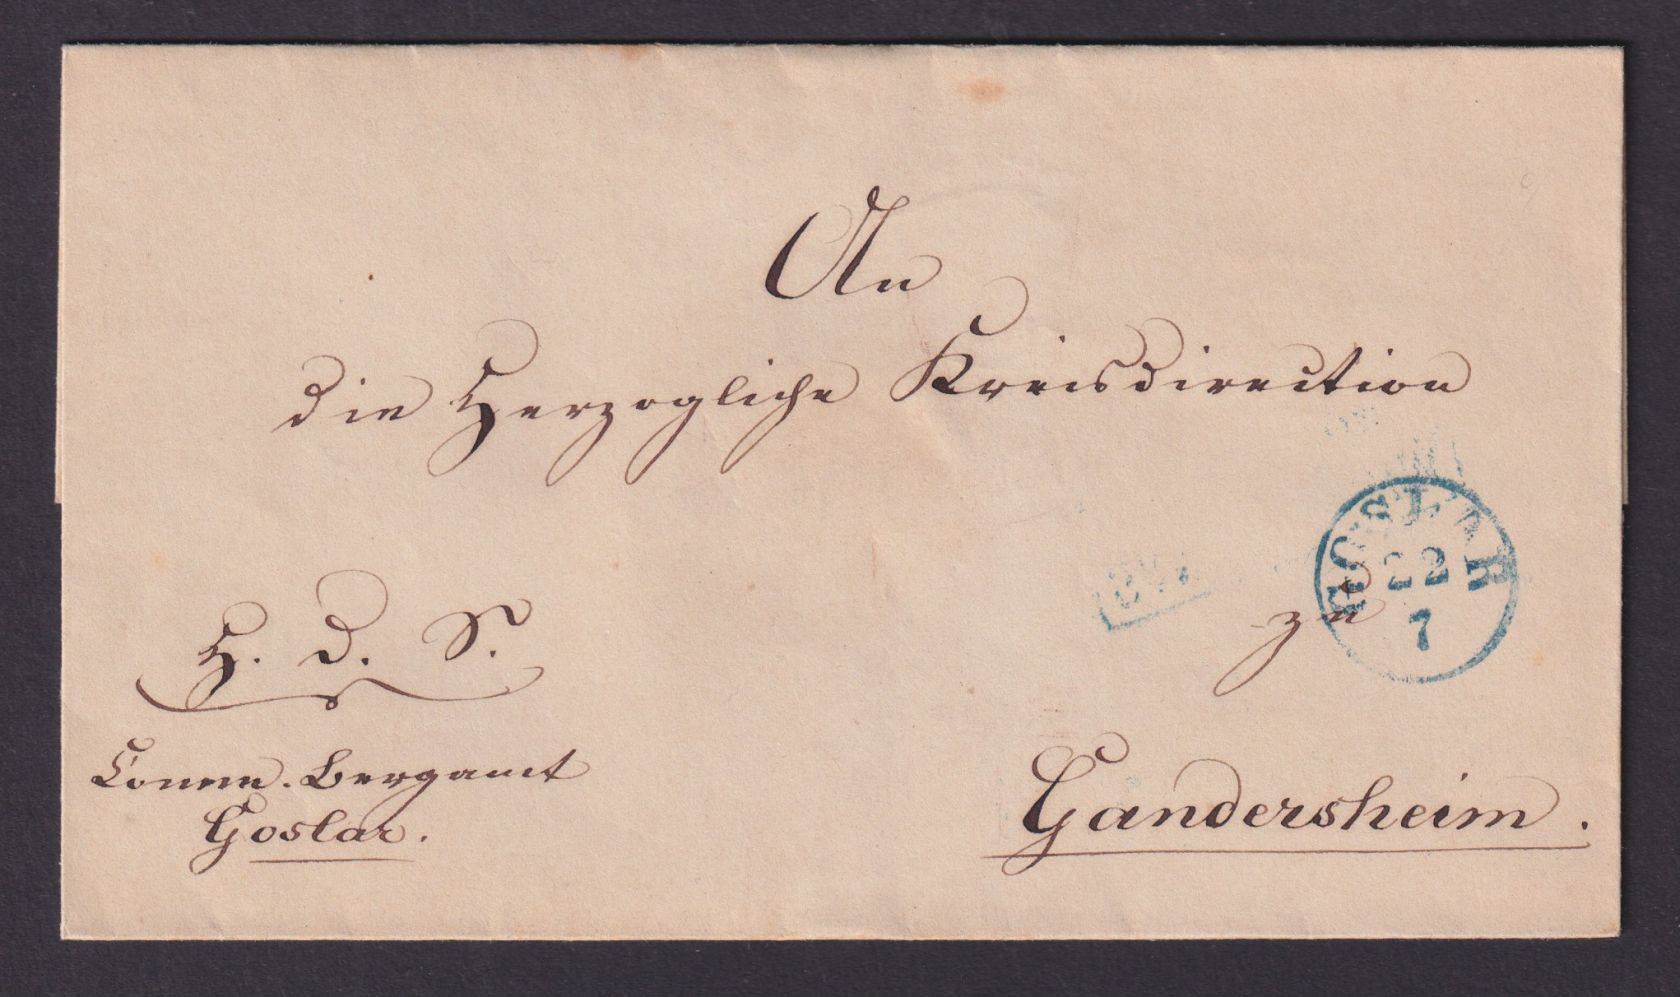 An
die Herzogliche Kreisdirection
GOSLAR
22
7
zu
H. D. S.
Comm. Bergamt
Goslar.
Gandersheim.